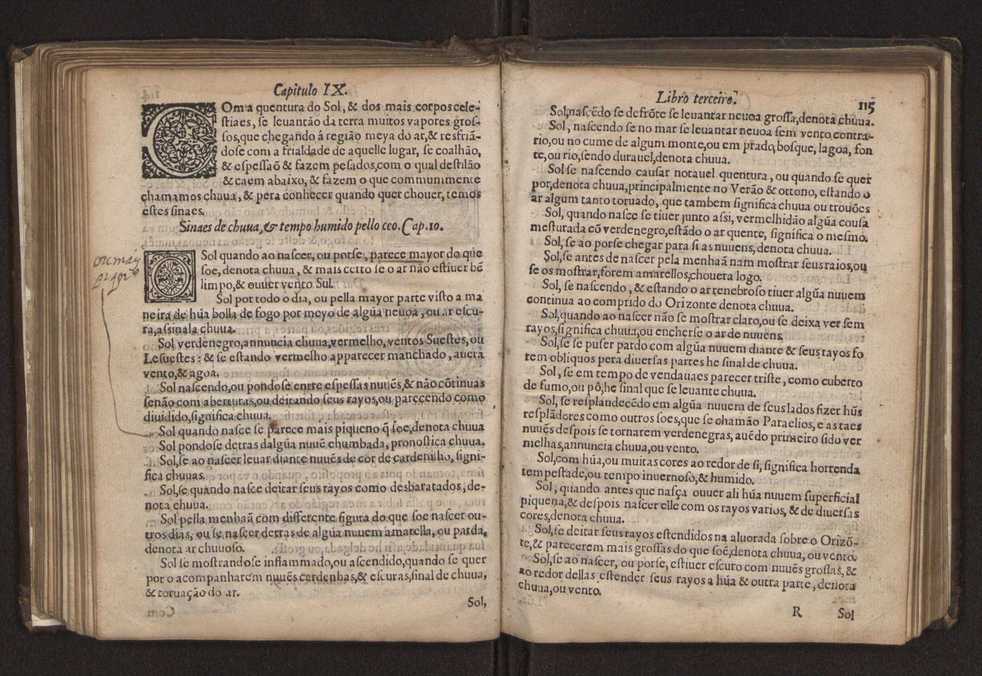 Capitulo IX.
COm a quentura do Sol, & dos mais corpos cele-
stiaes, se leuantão da terra muitos vapores gros-
sos, que chegando á região meya do ar, & resfriã-
dose com a frialdade de aquelle lugar, se coalhão,
& espessaõ & fazem pesados, com o qual destilão
& caem abaixo, & fazem o que communmente
chamamos chuua, & pera conhecer quando quer chouer, temos
estes sinaes.
Sinaes de chuua, & tempo humido pello ceo. Cap. 10.
O Sol quando ao nascer, ou porse, parece mayor do que
soe, denota chuua, & mais certo se o ar não estiuer bẽ
limpo, & ouuer vento Sul.
Sol por todo o dia, ou pella mayor parte visto a ma
neira de hũa bolla de fogo por meyo de algũa neuoa, ou ar escu-
ra, assinala chuua.
Sol verdenegro, annuncia chuua, vermelho, ventos Suestes, ou
Lesuestes: & se estando vermelho apparecer manchado, auera
vento, & agoa.
Sol nascendo, ou pondose entre espessas nuuẽs, & não cõtinuas
senão com aberturas, ou deitando seus rayos, ou parecendo como
diuidido, significa chuua.
Sol quando nasce se parece mais piqueno q̃ soe, denota chuua
Sol pondose detras dalgũa nuuẽ chumbada, pronostica chuua.
Sol, se ao nascer leuar diante nuuẽs de cor de cardenilho, signi-
fica chuuas.
Sol, se quando nasce deitar seus rayos como desbaratados, de-
nota chuua.
Sol pella menhaã com differente figura do que soe nascer ou-
tros dias, ou se nascer detras de algũa nuuem amarella, ou parda,
denota ar chuuoso.
Sol se mostrandose inflammado, ou ascendido, quando se quer
por o acompanharem nuuẽs cardenhas, & escuras, sinal de chuua,
& toruação do ar.
Sol,
Libro terceiro.
115
Sol, nascẽdo se defrõte se leuantar neuoa grossa, denota chuua.
Sol, nascendo se no mar se leuantar neuoa sem vento contra-
rio, ou no cume de algum monte, ou em prado, bosque, lagoa, fon
te, ou rio, sendo durauel, denota chuua.
Sol se nascendo causar notauel quentura, ou quando se quer
por, denota chuua, principalmente no Verão & ottono, estando o
ar algum tanto toruado, que tambem significa chuua ou trouões
Sol, quando nasce se tiuer junto assi, vermelhidão algũa cousa
mesturada cõ verdenegro, estãdo o ar quente, significa o mesmo.
Sol, se ao porse chegar para si as nuuens, denota chuua.
Sol, se antes de nascer pela menhaã nam mostrar seus raios, ou
se os mostrar, forem amarellos, chouera logo.
Sol, se nascendo, & estando o ar tenebroso tiuer algũa nuuem
continua ao comprido do Orizonte denota chuua.
Sol, quando ao nascer não se mostrar claro, ou se deixa ver sem
rayos, significa chuua, ou encherse o ar de nuuens.
Sol, se se puser pardo com algũa nuuem diante & seus rayos fo
tem obliquos pera diuersas partes he sinal de chuua.
Sol, se em tempo de vendauaes parecer triste, como cuberto
de fumo, ou pò, he sinal que se leuante chuua.
Sol, se resplandecẽdo em algũa nuuem de seus lados fizer hũs
resplãdores como outros soes, que se chamão Paraelios, e as taes
nuuẽs despois se tornarem verdenegras, auẽdo primeiro sido ver
melhas, annuncia chuua, ou vento.
Sol, com hũa, ou muitas cores ao redor de si, significa horrenda
tempestade, ou tempo inuernoso, & humido.
Sol, quando antes que nasça ouuer ali hũa nuuem superficial
piquena, & despois nascer elle com os rayos varios, & de diuersas
cores, denota chuua.
Sol, se deitar seus rayos estendidos na aluorada sobre o Orizõ-
te, & parecerem mais grossas do que soẽ, denota chuua, ou vento.
Sol, se ao nascer, ou porse, estiuer escuro com nuuẽs grossas, &
ao redor dellas estender seus rayos a hũa & outra parte, denota
chuua, ou vento.
R Sol